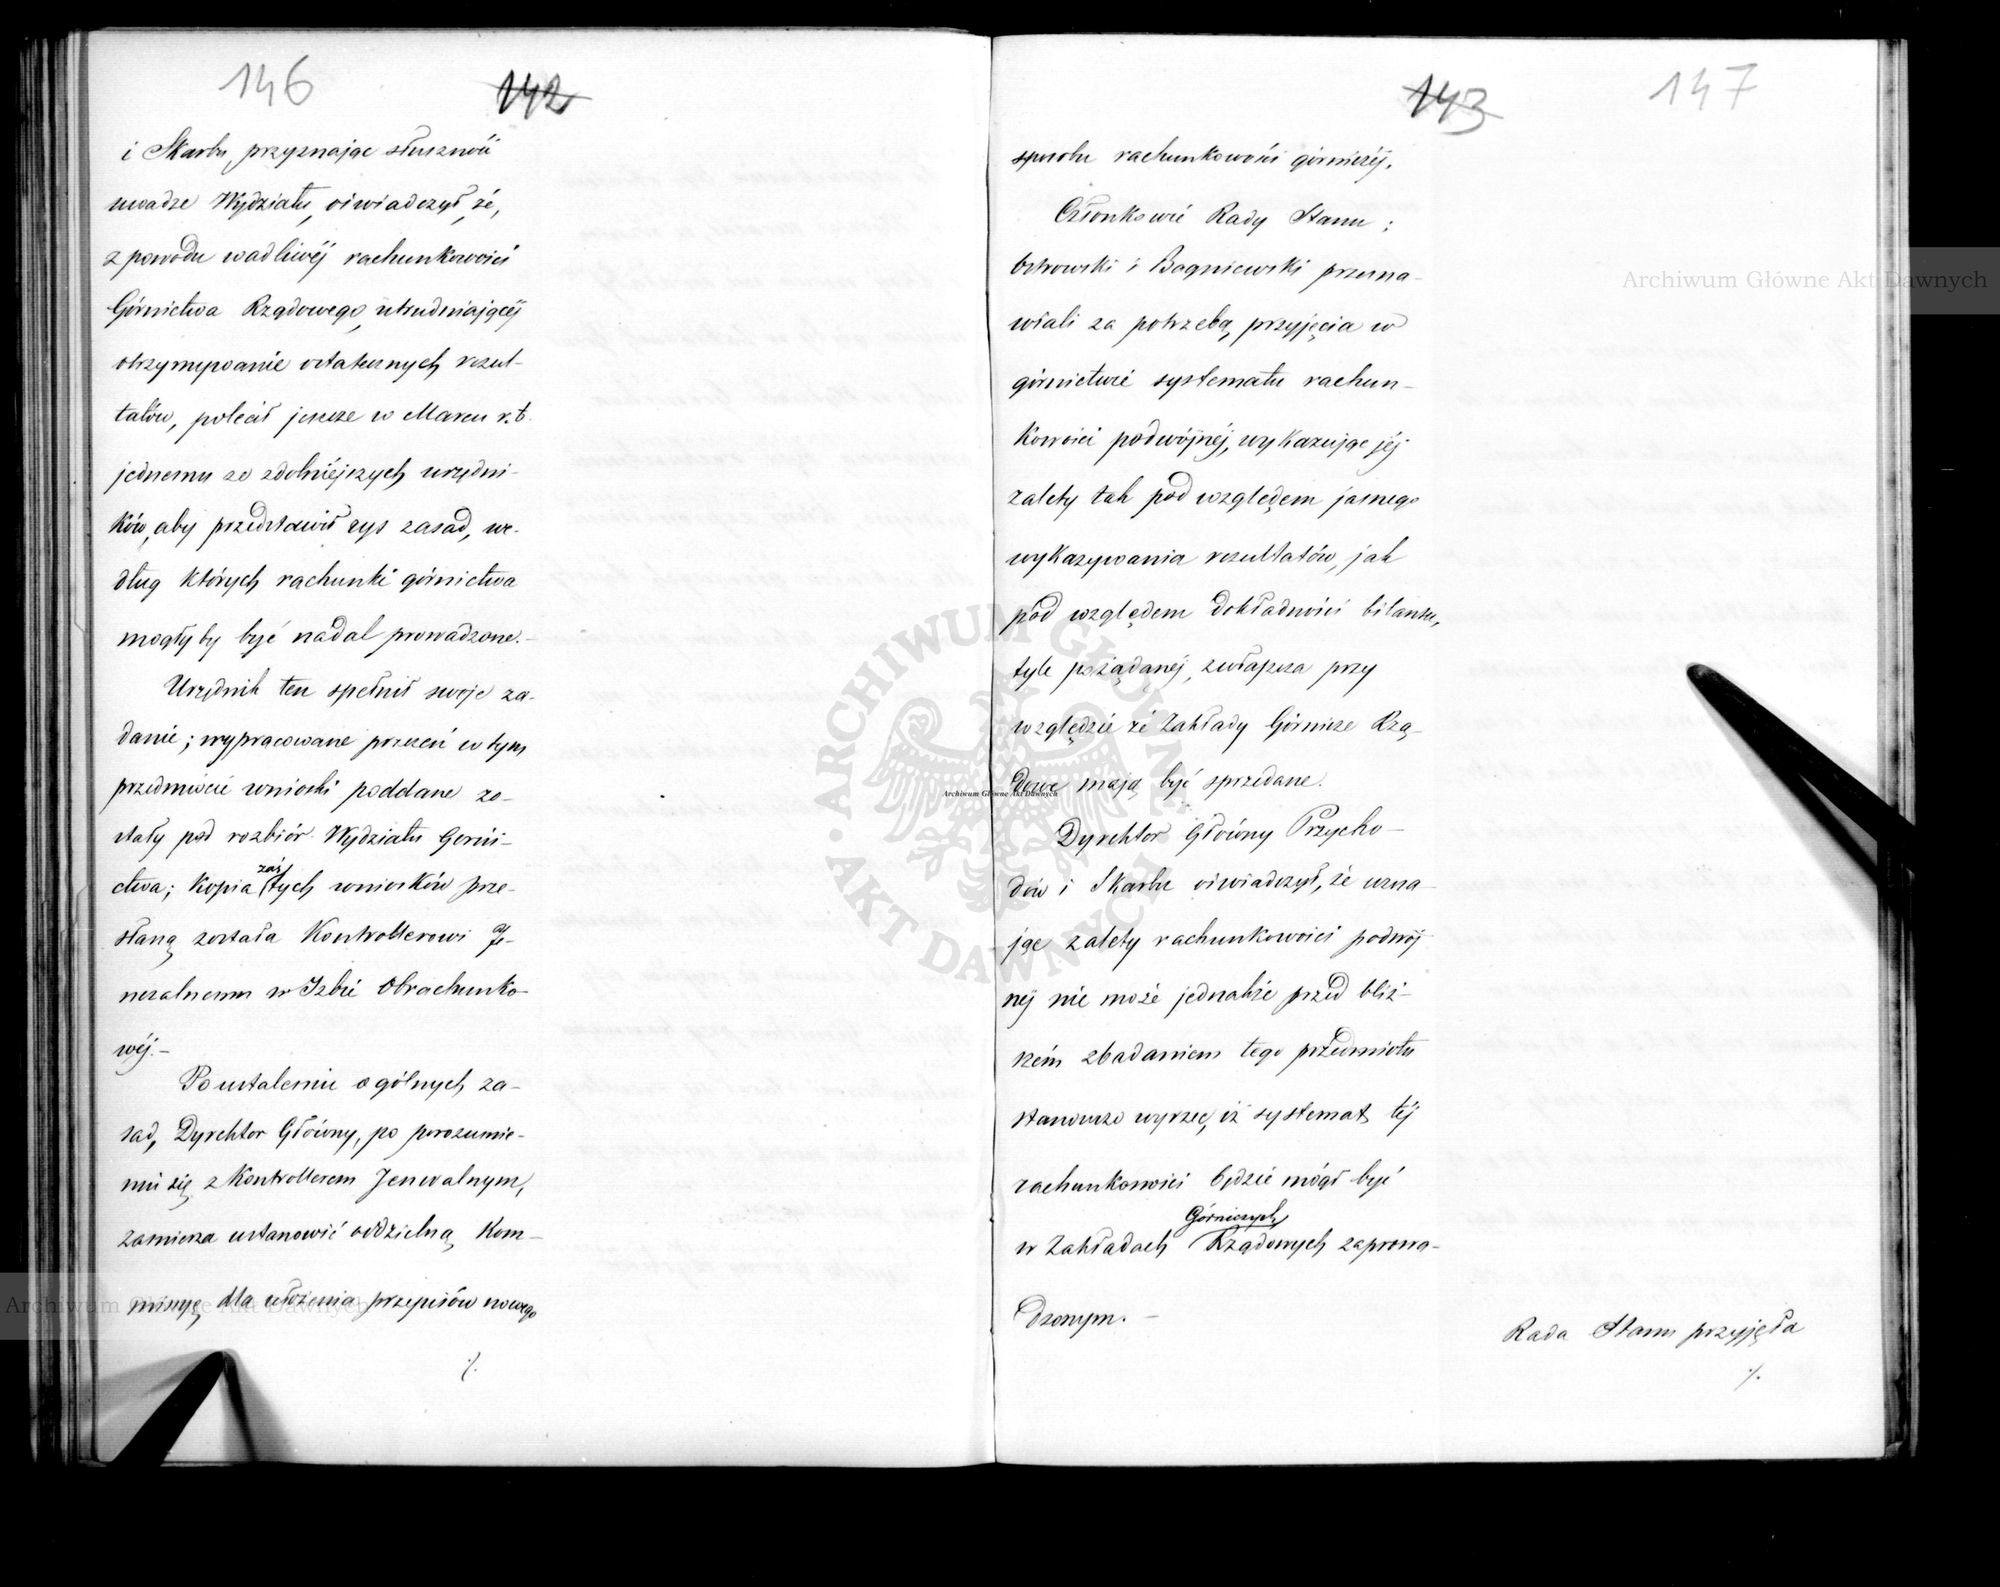 146
142
i Skarbu, przyznając słuszność
uwadze Wydziału, oświadczył, że,
z powodu wadliwéj rachunkowości
Górnictwa Rządowego, utrudniającéj
otrzymywanie ostatecznych rezul-
tatów, polecił jeszcze w Marcu r.b.
jednemu ze zdolniejszych urzędni-
ków, aby przedstawił rys zasad, we-
dług których rachunki górnictwa
mogłyby być nadal prowadzone.-
Urzędnik ten spełnił swoje za-
danie; wypracowane przezeń w tym
przedmiocie wnioski poddane zo-
stały pod rozbiór Wydziału Górni-
ctwa; kopia zaś tych wniosków prze-
słaną została Kontrollerowi Je-
neralnemu w Izbie Obrachunko-
wéj.-
Po ustaleniu ogólnych za-
sad, Dyrektor Główny, po porozumie-
niu się z Kontrollerem Jeneralnym,
zamierza ustanowić oddzielną Kom-
missyę dla ułożenia przepisów nowego
./.
143
147
sposobu rachunkowości górniczéj.
Członkowie Rady Stanu:
Ostrowski i Bagniewski przema-
wiali za potrzebą przyjęcia w
górnictwie systematu rachun-
kowości podwójnéj, wykazując jéj
zalety tak pod względem jasnego
wykazywania rezultatów, jak
pod względem dokładności bilansu,
tyle pożądanéj, zwłaszcza przy
względzie że Zakłady Górnicze Rzą-
dowe mają być sprzedane.
Dyrektor Główny Przycho-
dów i Skarbu oświadczył, że uzna-
jąc zalety rachunkowości podwój-
néj nie może jednakże przed bliż-
szém zbadaniem tego przedmiotu
stanowczo wyrzec, iż systemat téj
rachunkowości będzie mógł być
w Zakładach Górniczych Rządowych zaprowa-
dzonym.-
Rada Stanu przyjęła
./.
Archiwum Główne Akt Dawnych
Archiwum Główne Akt Dawnych
Archiwum Główne Akt Dawnych
ARCHIWUM GŁÓWNE AKT DAWNYCH